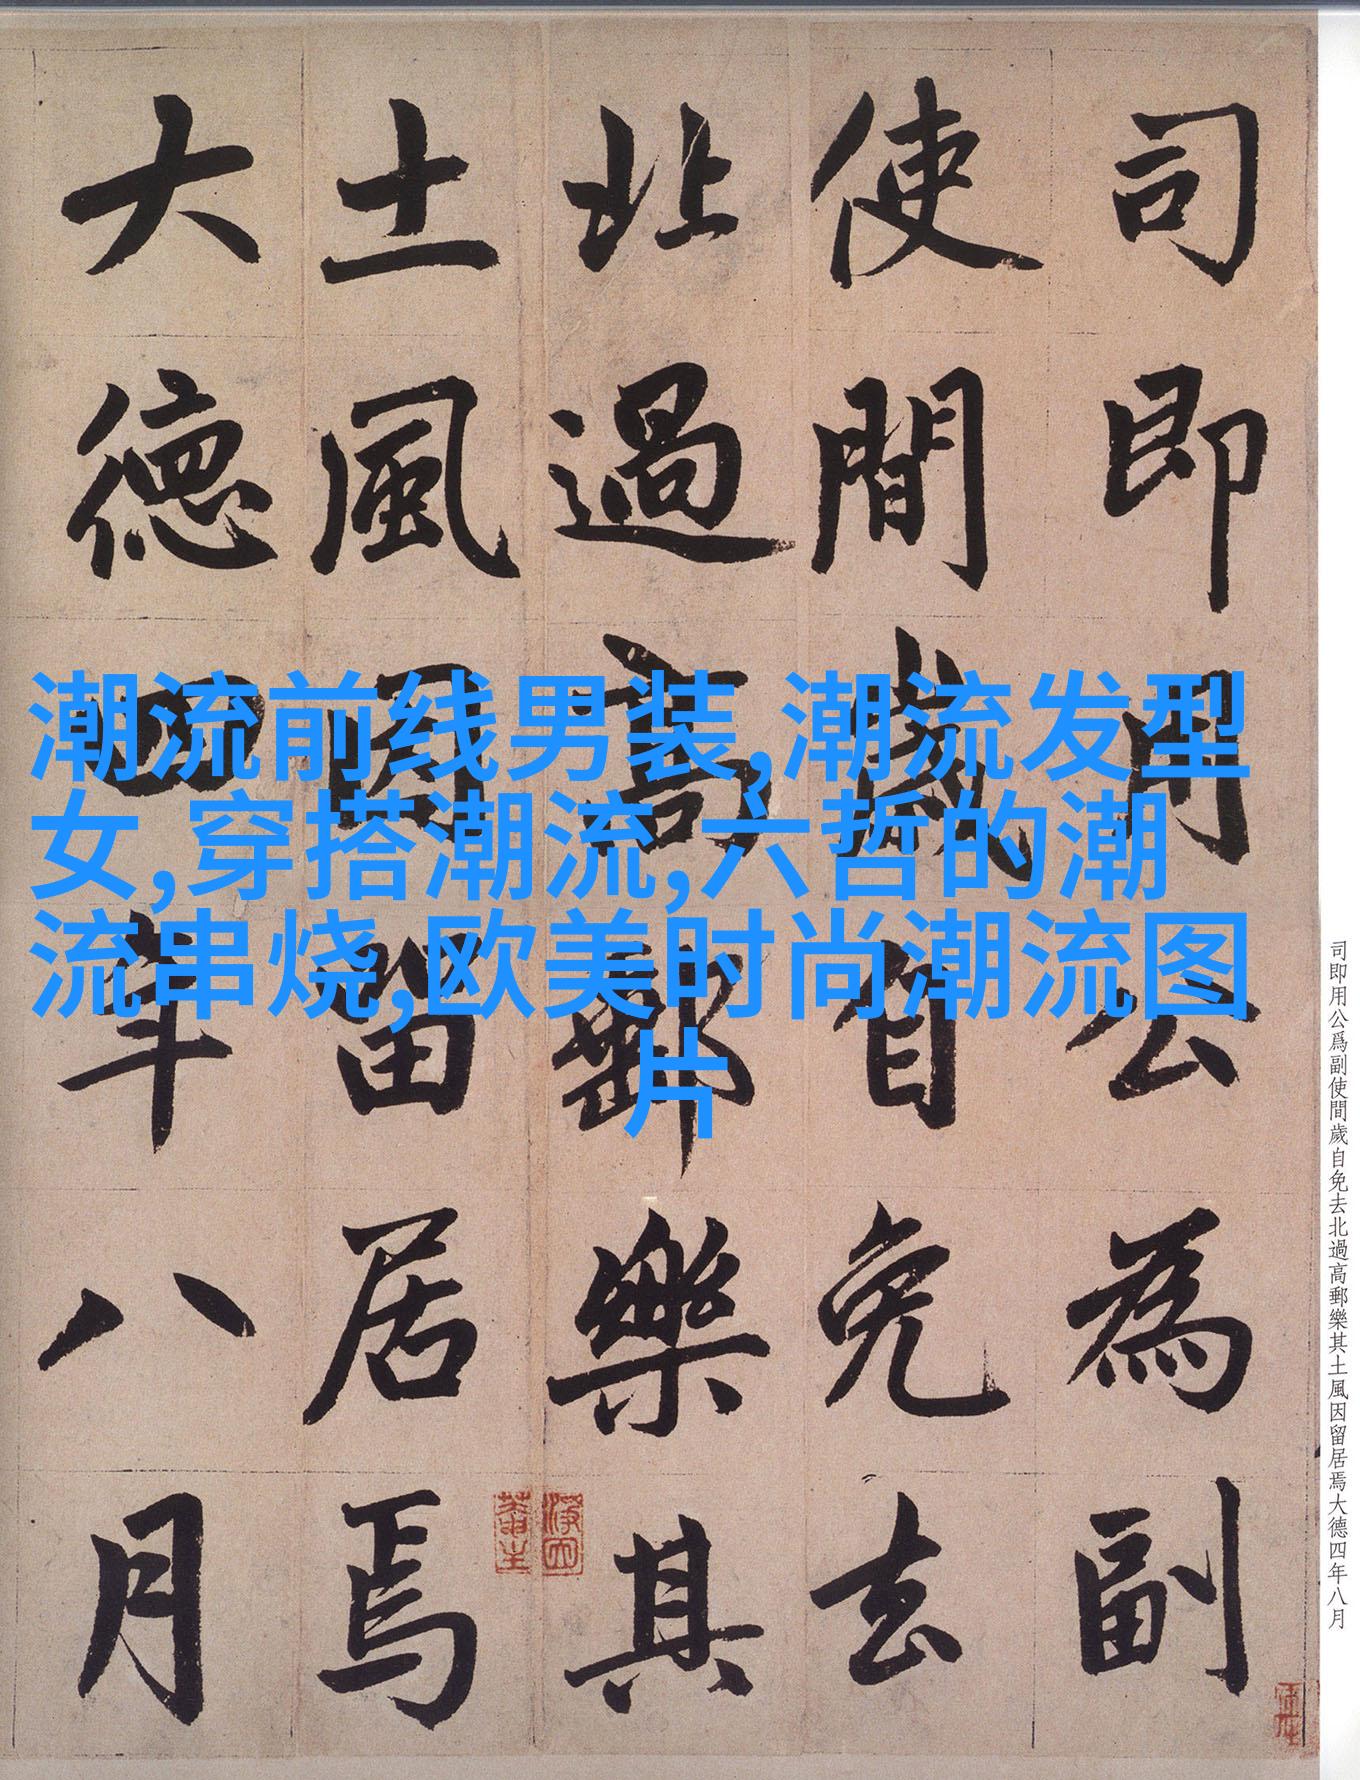 司即用公為副
使間歲自免去
北過高郵樂其
土風因留居焉
大德四年八月
潮流前线男装,潮流发型
女,穿搭潮流,六哲的潮
流串烧,欧美时尚潮流图
片
司即用公爲副使間歲自免去北過高郵樂其土風因留居焉大德四年八月